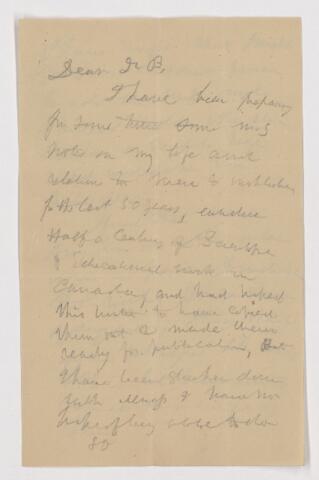 Dear Dr B,
I have been preparing
for some time some
notes on my life and
relation to men &
for the last 50 years, 
Half a Century of Scientific
& Educational work in
Canada, and had hoped
this winter to have copied
them out & made them
ready for publication, But
I have been stricken down
with illness & have no
hope of being able to do
so